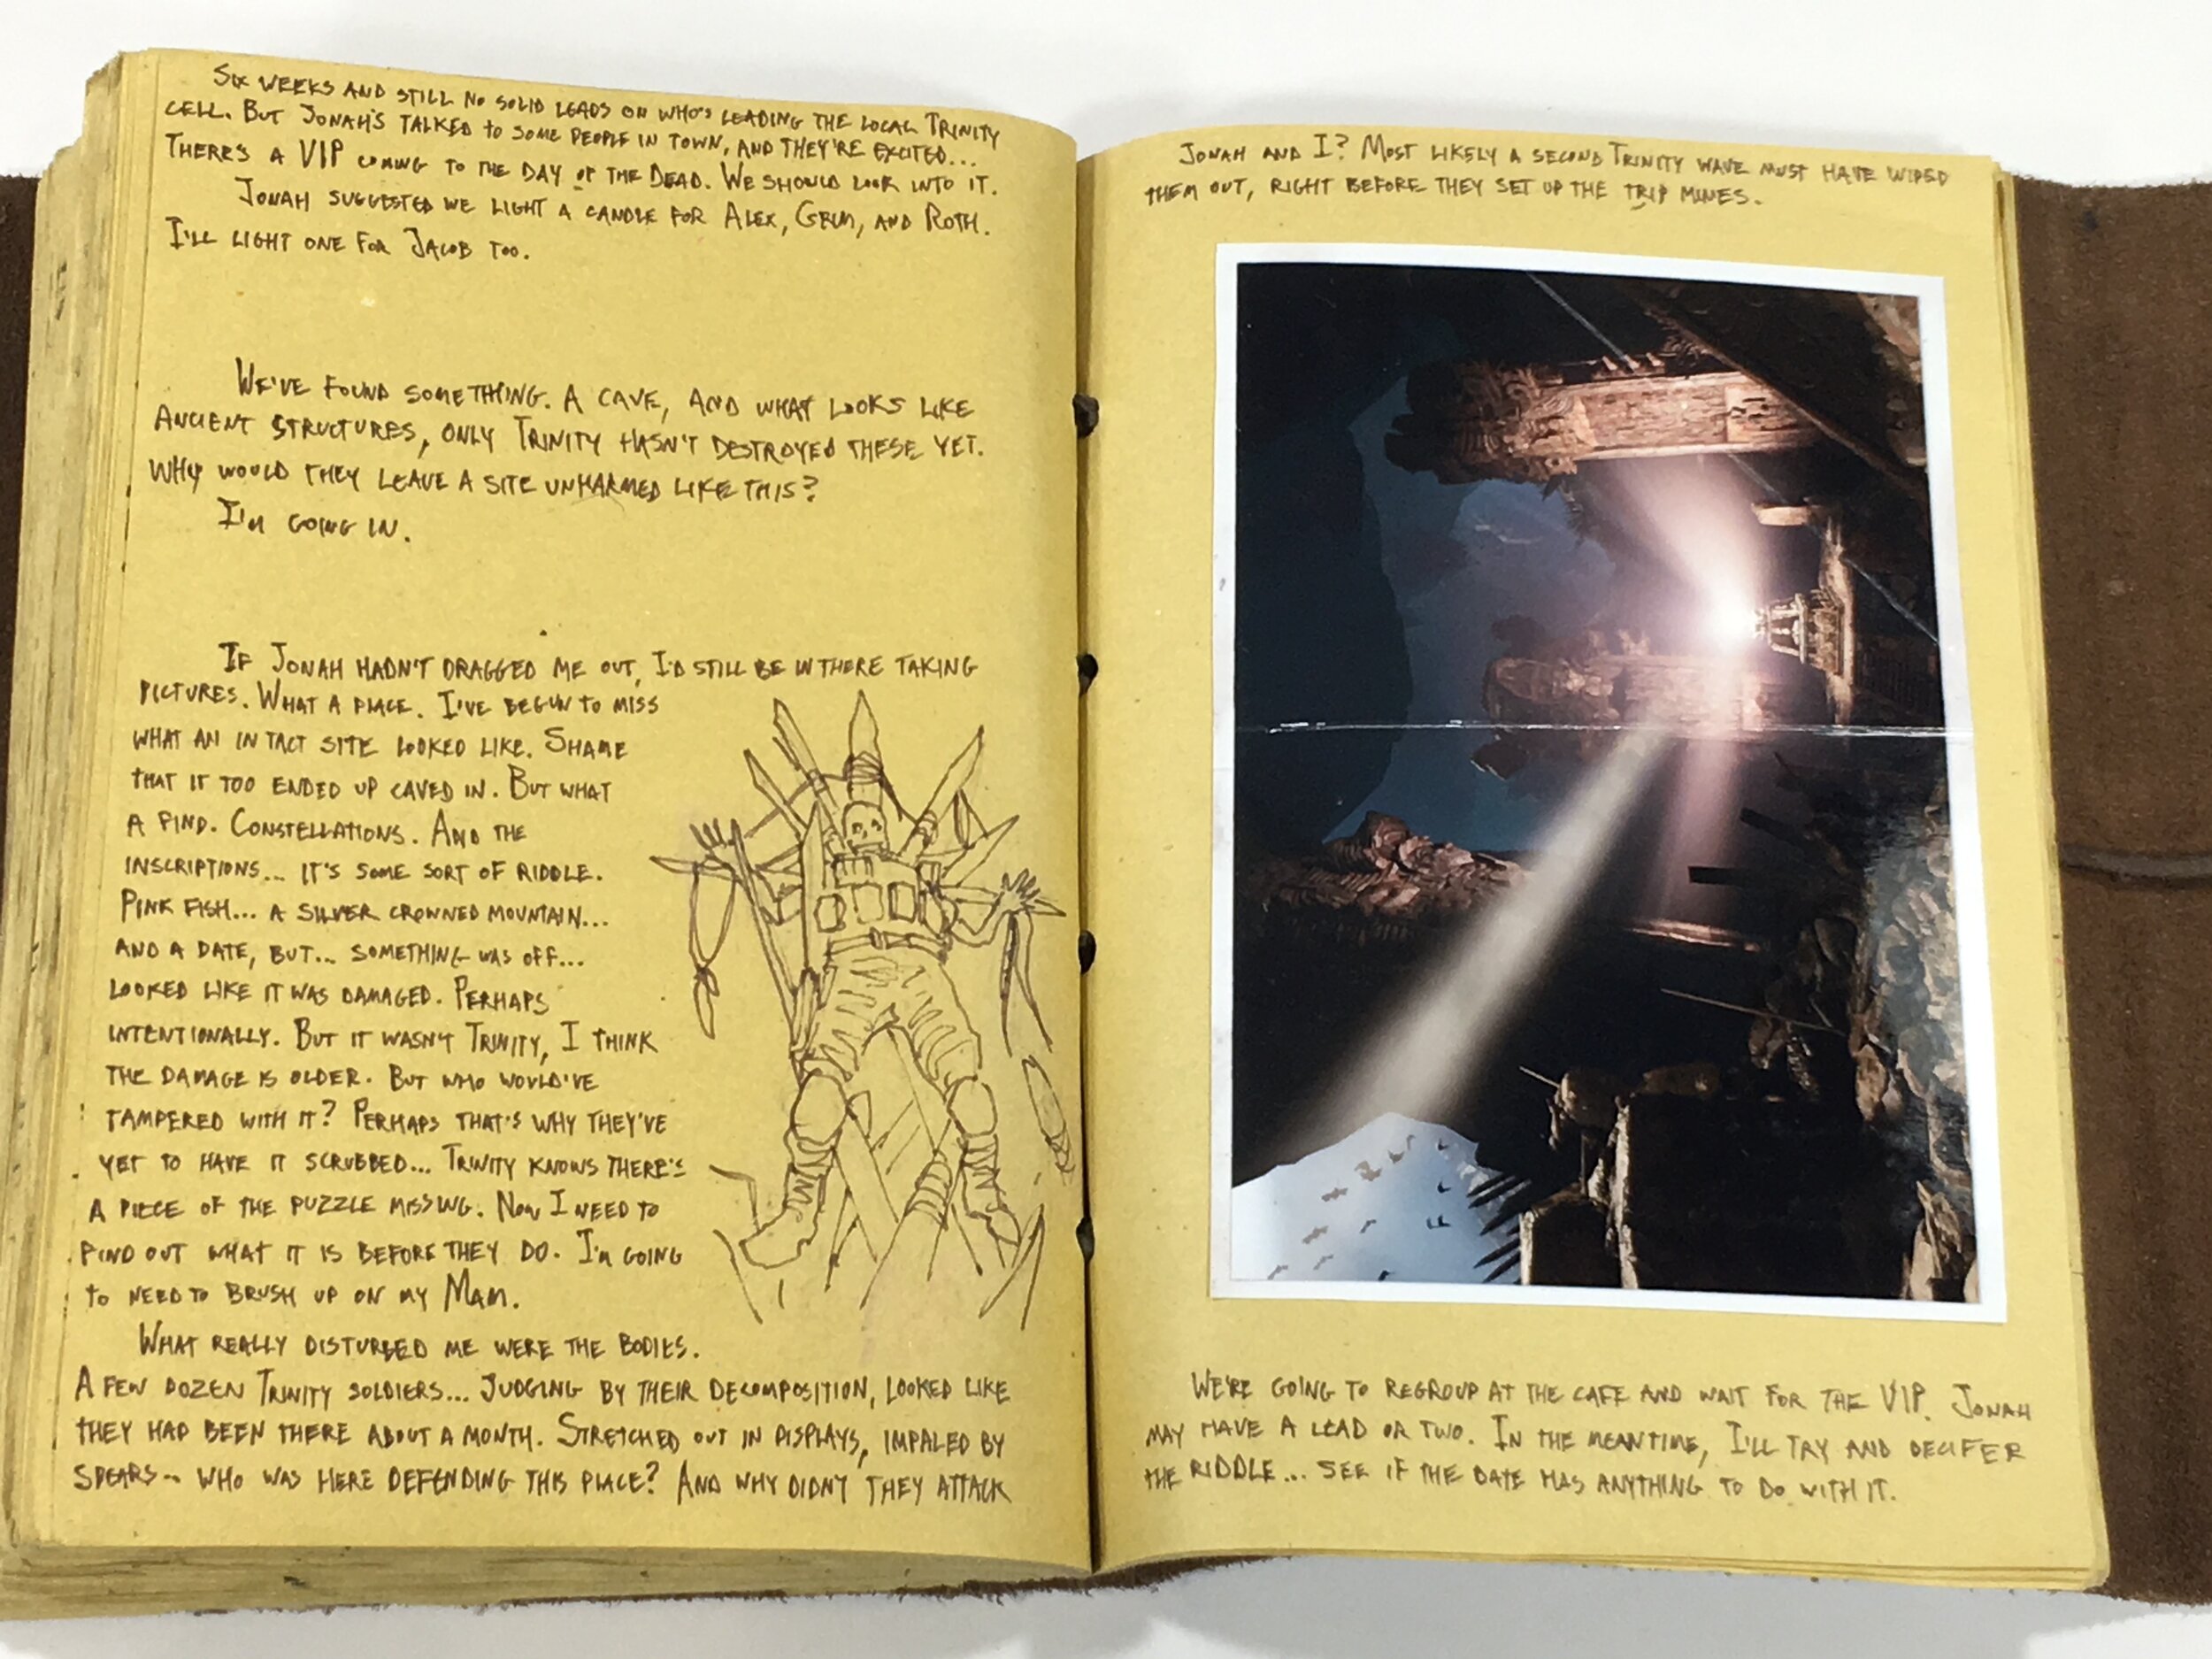 Six weeks and still no solid leads on who's leading the local Trinity
cell. But Jonah's talked to some people in town, and they're excited...
There's a VIP coming to the Day of the Dead. We should look into it.
Jonah suggested we light a candle for Alex, Grim, and Roth.
I'll light one for Jacob too.
We've found something. A cave, and what looks like
ancient structures, only Trinity hasn't destroyed these yet.
Why would they leave a site unharmed like this?
I'm going in.
If Jonah hadn't dragged me out, I'd still be in there taking
pictures. What a place. I've begun to miss
what an intact site looked like. Shame
that it too ended up caved in. But what
a find. Constellations. And the
inscriptions... it's some sort of riddle.
Pink fish... a silver crowned mountain...
and a date, but... something was off...
looked like it was damaged. Perhaps
intentionally. But it wasn't Trinity, I think
the damage is older. But who would've
tampered with it? Perhaps that's why they've
yet to have it scrubbed... Trinity knows there's
a piece of the puzzle missing. Now I need to
find out what it is before they do. I'm going
to need to brush up on my Mam.
What really disturbed me were the bodies.
A few dozen Trinity soldiers... judging by their decomposition, looked like
they had been there about a month. Stretched out in displays, impaled by
spears... who was here defending this place? And why didn't they attack
Jonah and I? Most likely a second Trinity wave must have wiped
them out, right before they set up the trip mines.
We're going to regroup at the cafe and wait for the VIP. Jonah
may have a lead or two. In the meantime, I'll try and decifer
the riddle... see if the date has anything to do with it.